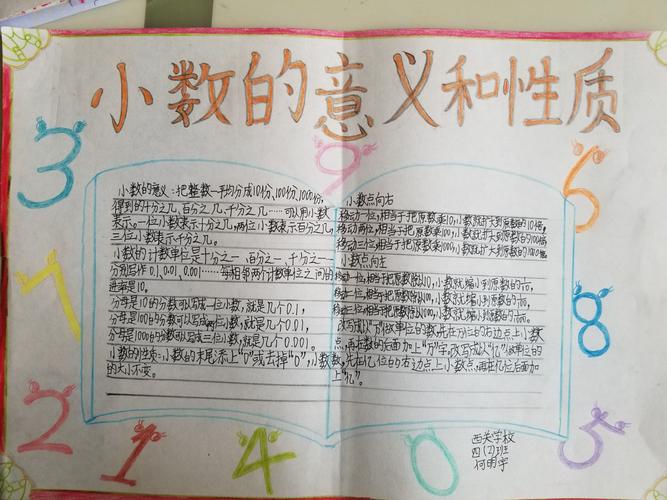 小数的意义和性质
3
9
6
7
8
2
1
4
0
5
小数的意义:把整数一平均分成10份、100份、1000份,
得到的十分之几、百分之几、千分之几……可以用小数
表示。一位小数表示十分之几,两位小数表示百分之几,
三位小数表示千分之几。
小数的计数单位是十分之一、百分之一、千分之一……
分别写作0.1、0.01、0.001……每相邻两个计数单位之间的
进率是10。
分母是10的分数可以写成一位小数,就是几个0.1,
分母是100的分数可以写成两位小数,就是几个0.01,
分母是1000的分数可以写成三位小数,就是几个0.001。
小数的性质:小数的末尾添上"0"或去掉"0",小数
的大小不变。
小数点向右
移动一位,相当于把原数乘10,小数就扩大到原数的10倍,
移动两位,相当于把原数乘100,小数就扩大到原数的100倍
移动三位,相当于把原数乘1000,小数就扩大到原数的1000倍
小数点向左
移动一位,相当于把原数除以10,小数就缩小到原数的
相当于把原数除以100,小数就缩小到原数的
相当于把原数除以1000,小数就缩小到原数的
改写成以"万"做单位的数,先在万位的右边点上小数
点,再在数的后面加上"万"字,改写成以"亿"做单位的
数,先在亿位的右边点上小数点,再在亿位后面加
上"亿"。
西关学校
四(2)班
何明宇